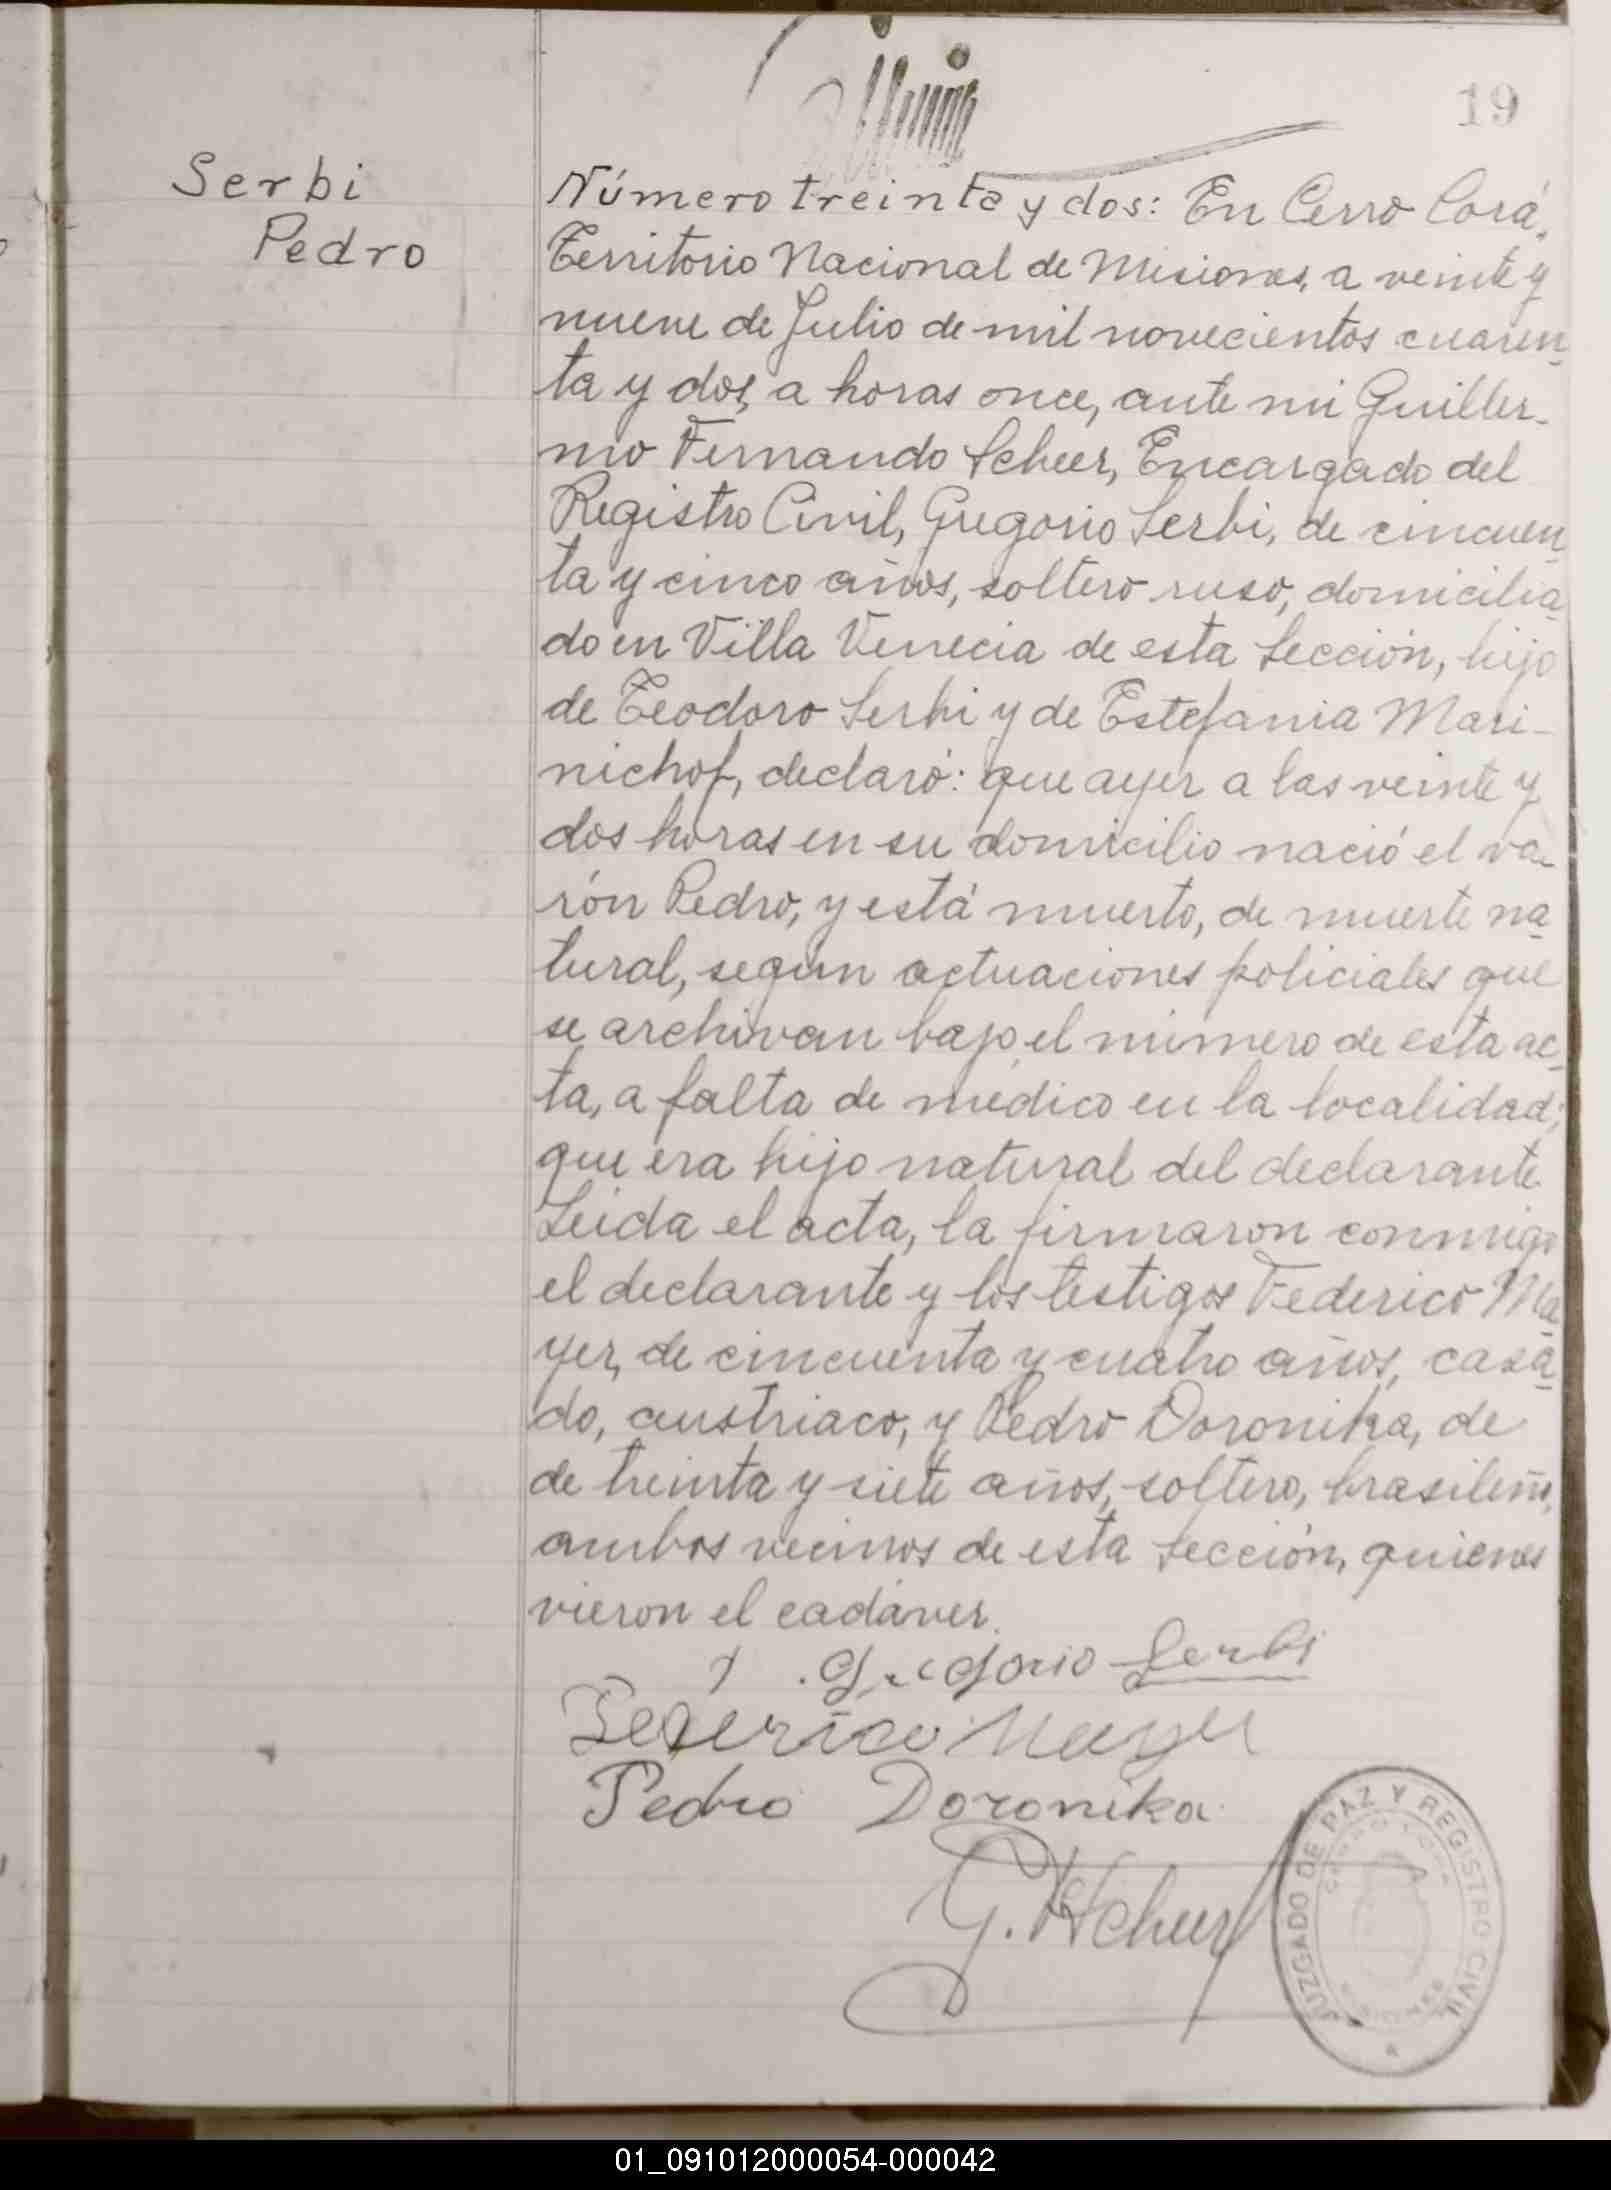 19
Serbi
Pedro
Número treinta y dos: En Cerro Corá,
Territorio Nacional de Misiones, a veinte y
nueve de Julio de mil novecientos cuaren-
ta y dos, a horas once, ante mi Guiller-
mo Fernando Scheer, Encargado del
Registro Civil, Gregorio Serbi, de cincuen
ta y cinco años, soltero ruso, domicilia
do en Villa Venecia de esta Sección, hijo
de Teodoro Serbi y de Estefania Mari-
nichof, declaró: que ayer a las veinte y
dos horas en su domicilio nació el va-
rón Pedro, y está muerto, de muerte na-
tural, segun actuaciones policiales que
se archivan bajo el número de esta ac-
ta, a falta de médico en la localidad;
que era hijo natural del declarante.
Leida el acta, la firmaron conmigo
el declarante y los testigos Federico Ma-
yer, de cincuenta y cuatro años, casa-
do, austriaco, y Pedro Doronika, de
de treinta y siete años, soltero, brasileño,
ambos vecinos de esta Sección, quienes
vieron el cadáver.
Gregorio Serbi
Federico Mayer
Pedro Doronika
G. F. Scheer
JUZGADO DE PAZ Y REGISTRO CIVIL
CERRO CORA
MISIONES
01_091012000054-000042